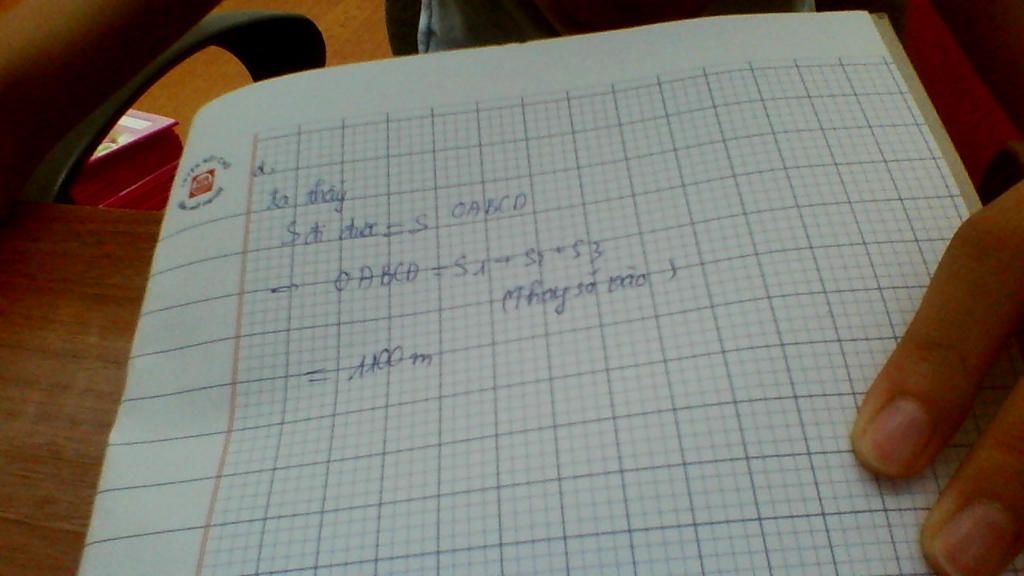 d.
ta thấy
S đi được = S OABCD
OABCD = S1 + S2 + S3
(Thay số vào)
= 1100 m